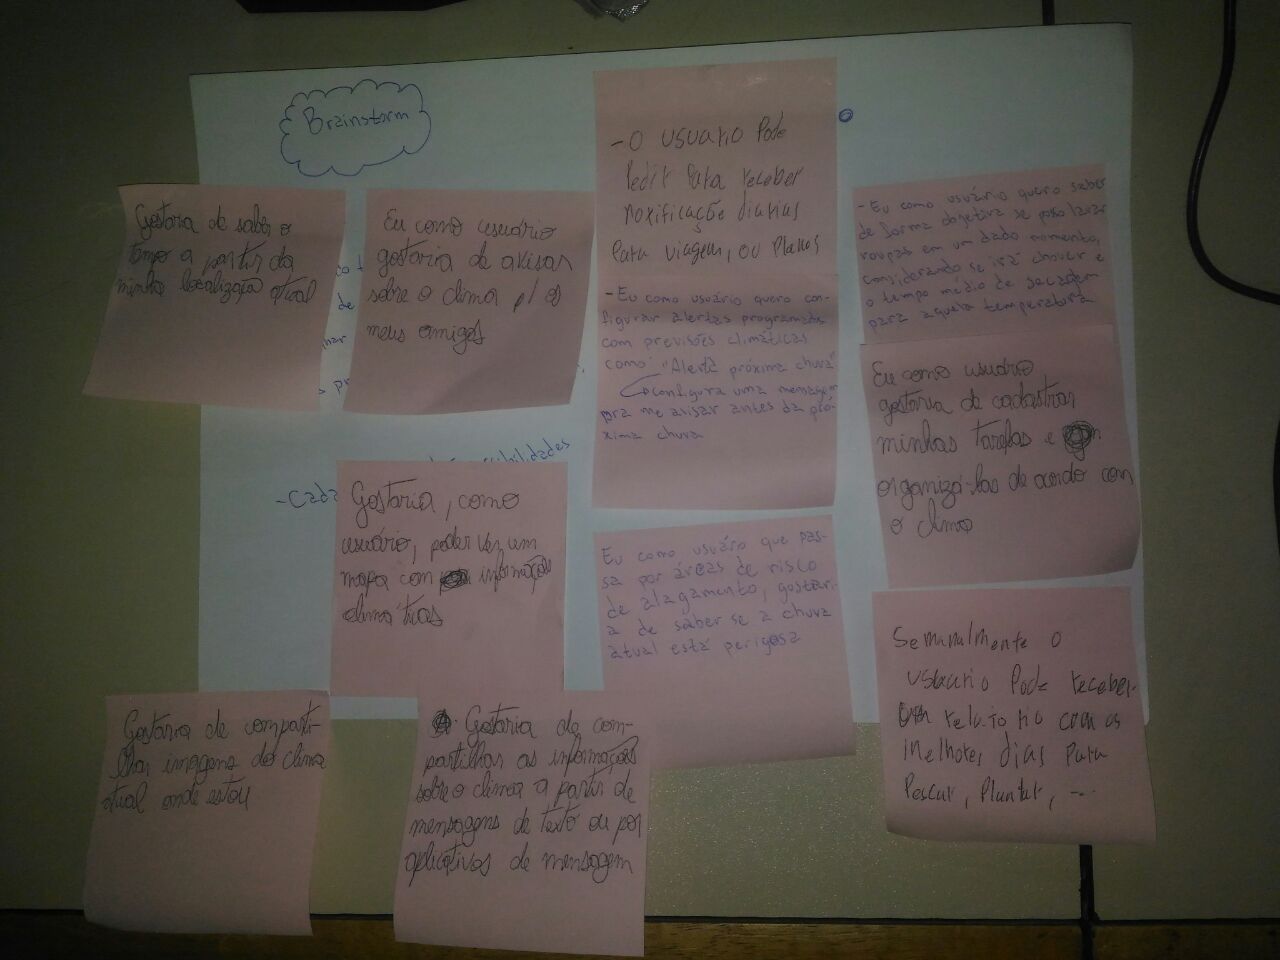 Brainstorm
Gostaria de saber o
tempo a partir da
minha localização atual
Eu como usuário
gostaria de avisar
sobre o clima p/ os
meus amigos
- O usuario Pode
Pedir Para receber
notificação diarias
Para viagem, ou Planos
- Eu como usuário quero con-
figurar alertas programados
com previsões climáticas
como: "Alerta próxima chuva"
configura uma mensagem
pra me avisar antes da pró-
xima chuva
- Eu como usuário quero saber
de forma objetiva se posso lavar
roupas em um dado momento,
considerando se irá chover e
o tempo médio de secagem
para aquela temperatura
Eu como usuário,
gostaria de cadastrar
minhas tarefas e
organizá-las de acordo com
o clima
- Cada
Gostaria, como
usuário, poder ver um
mapa com informações
climáticas
Eu como usuário que pas-
sa por áreas de risco
de alagamento, gostari-
a de saber se a chuva
atual está perigosa
Semanalmente o
usuario Pode receber
um relatorio com os
melhores dias Para
Pescar, Plantar, ...
Gostaria de comparti-
lhar imagens do clima
atual onde estou
Gostaria de com-
partilhar as informações
sobre o clima a partir de
mensagens de texto ou por
aplicativos de mensagem